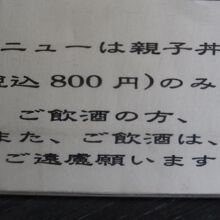 ニューは親子丼
税込800円)のみ
ご飲酒の方、
また、ご飲酒は、
ご遠慮願います